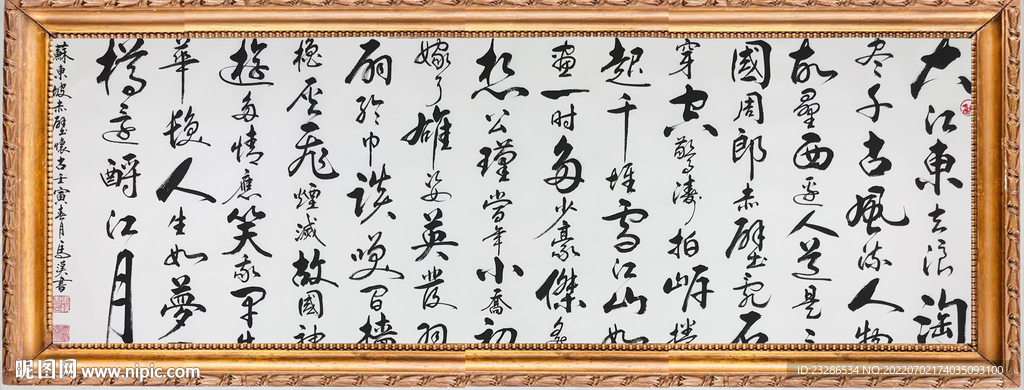 大江東去浪淘
尽千古風流人物
故壘西邊人道是三
國周郎赤壁亂石
穿空驚濤拍岸捲
起千堆雪江山如
畫一時多少豪傑遙
想公瑾當年小喬初
嫁了雄姿英發羽
扇綸巾談笑間檣
櫓灰飛煙滅故國神
遊多情應笑我早生
華髮人生如夢
樽還酹江月
蘇東坡赤壁懷古壬寅春月馬溪書
昵图网 www.nipic.com
ID:23286534 NO:20220702174035093100